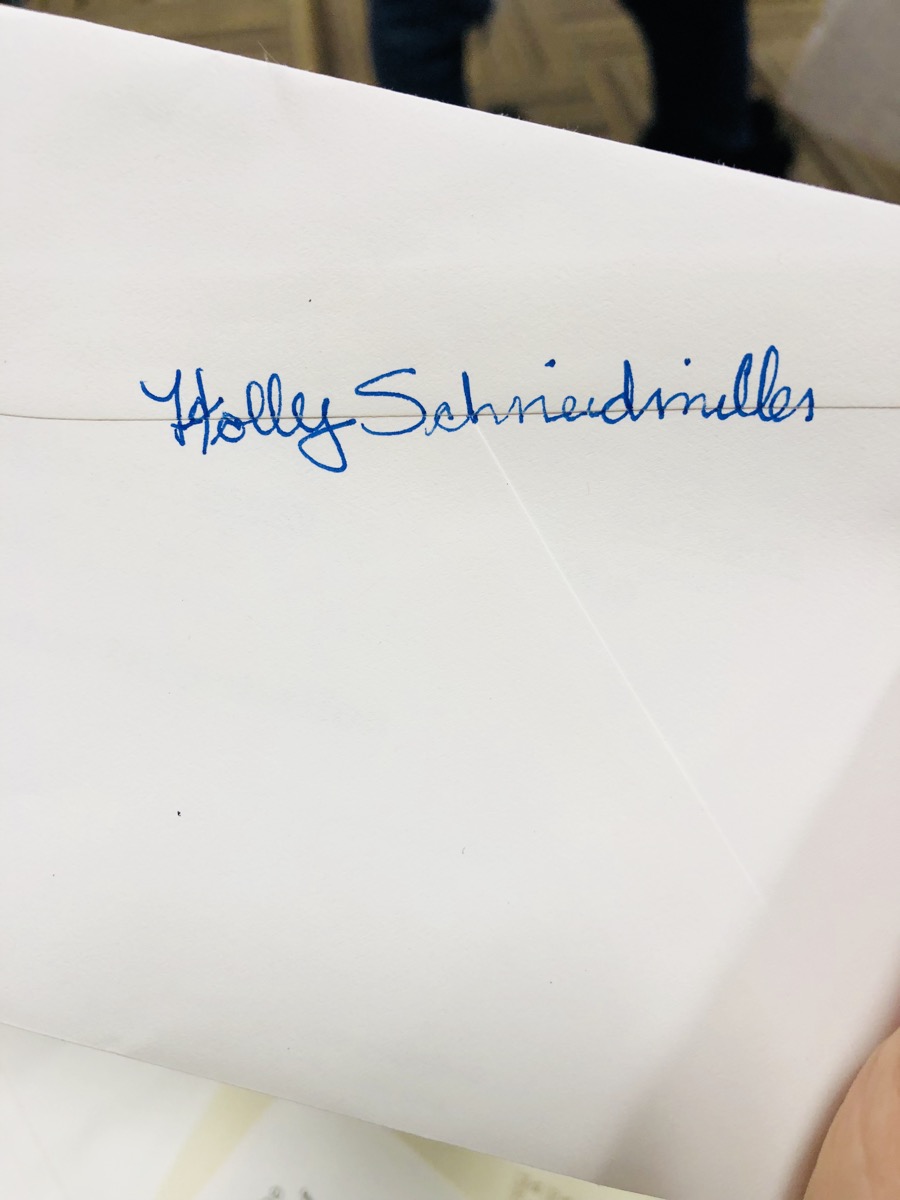 Holly Schniedmiller